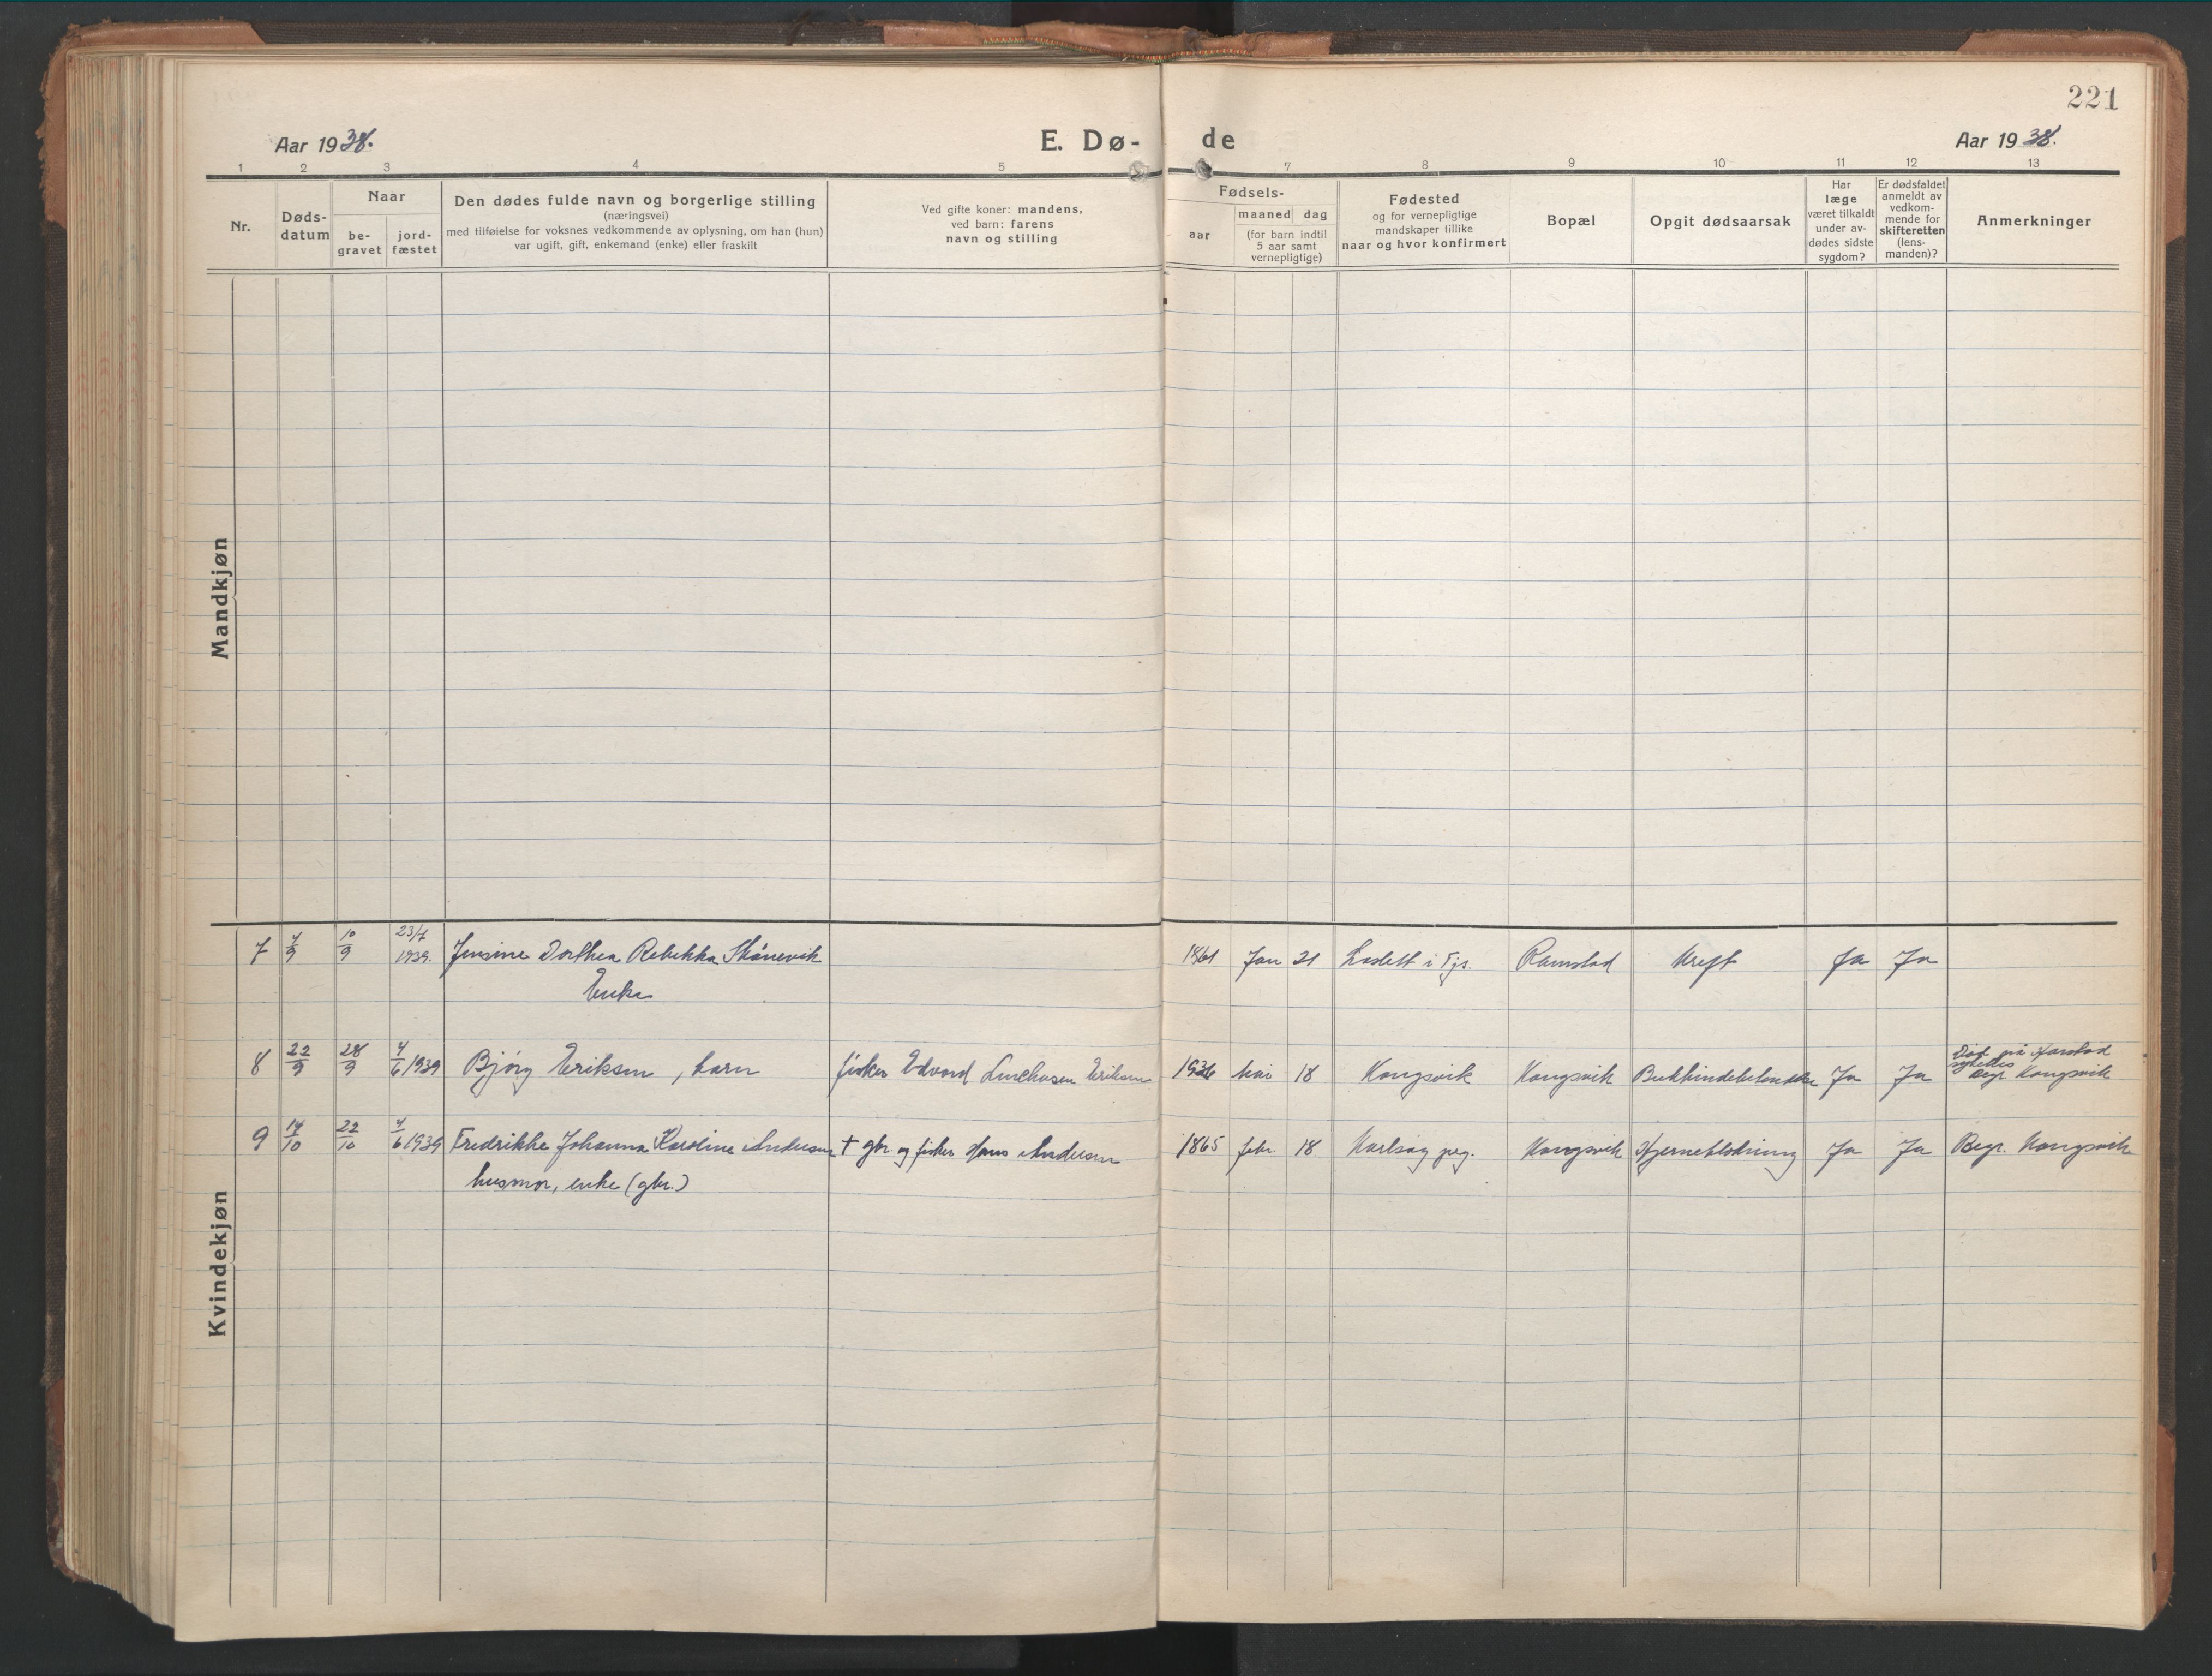 221
Aar 1938.
E. Dø-
de
Aar 1938.
1 2 3 4 5 7 8 9 10 11 12 13
Nr.
Døds-
datum
Naar
be-
gravet
jord-
fæstet
Den dødes fulde navn og borgerlige stilling
(næringsvei)
med tilføielse for voksnes vedkommende av oplysning, om han (hun)
var ugift, gift, enkemand (enke) eller fraskilt
Ved gifte koner: mandens,
ved barn: farens
navn og stilling
Fødsels-
aar
maaned dag
(for barn indtil
5 aar samt
vernepligtige)
Fødested
og for vernepligtige
mandskaper tillike
naar og hvor konfirmert
Bopæl
Opgit dødsaarsak
Har
læge
været tilkaldt
under av-
dødes sidste
sygdom?
Er dødsfaldet
anmeldt av
vedkom-
mende for
skifteretten
(lens-
manden)?
Anmerkninger
Mandkjøn
Kvindekjøn
7 10/9 1939. Jensine Dorthea Rebekka Skånevik 1861 Jan 21 i Tjs. Ramstad Kreft Ja Ja
Enke
8 22/9 28/9 4/6 1939 Bjørg Eriksen, barn fisker Edvard Eriksen 1936 mai 18 Kongsvik Kongsvik Ja Ja Død på Harstad
sykehus
Begr. Kongsvik
9 14/10 22/10 4/6 1939 Fredrikke Johanna Karoline Andersen † gbr. og fisker Hans Andersen 1865 febr. 18 Karlsøy pg. Kongsvik Hjerneblødning Ja Ja Begr. Kongsvik
husmor, enke (gbr.)